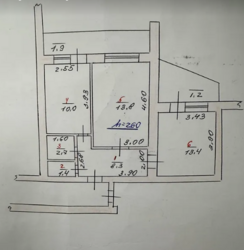 1.9
1.2
2.55
7
10.0
3.93
5
13.8
4.60
h=260
3.43
6
13.4
3.90
1.60
3
2.4
2
1.4
3.00
1
8.3
2.00
3.90